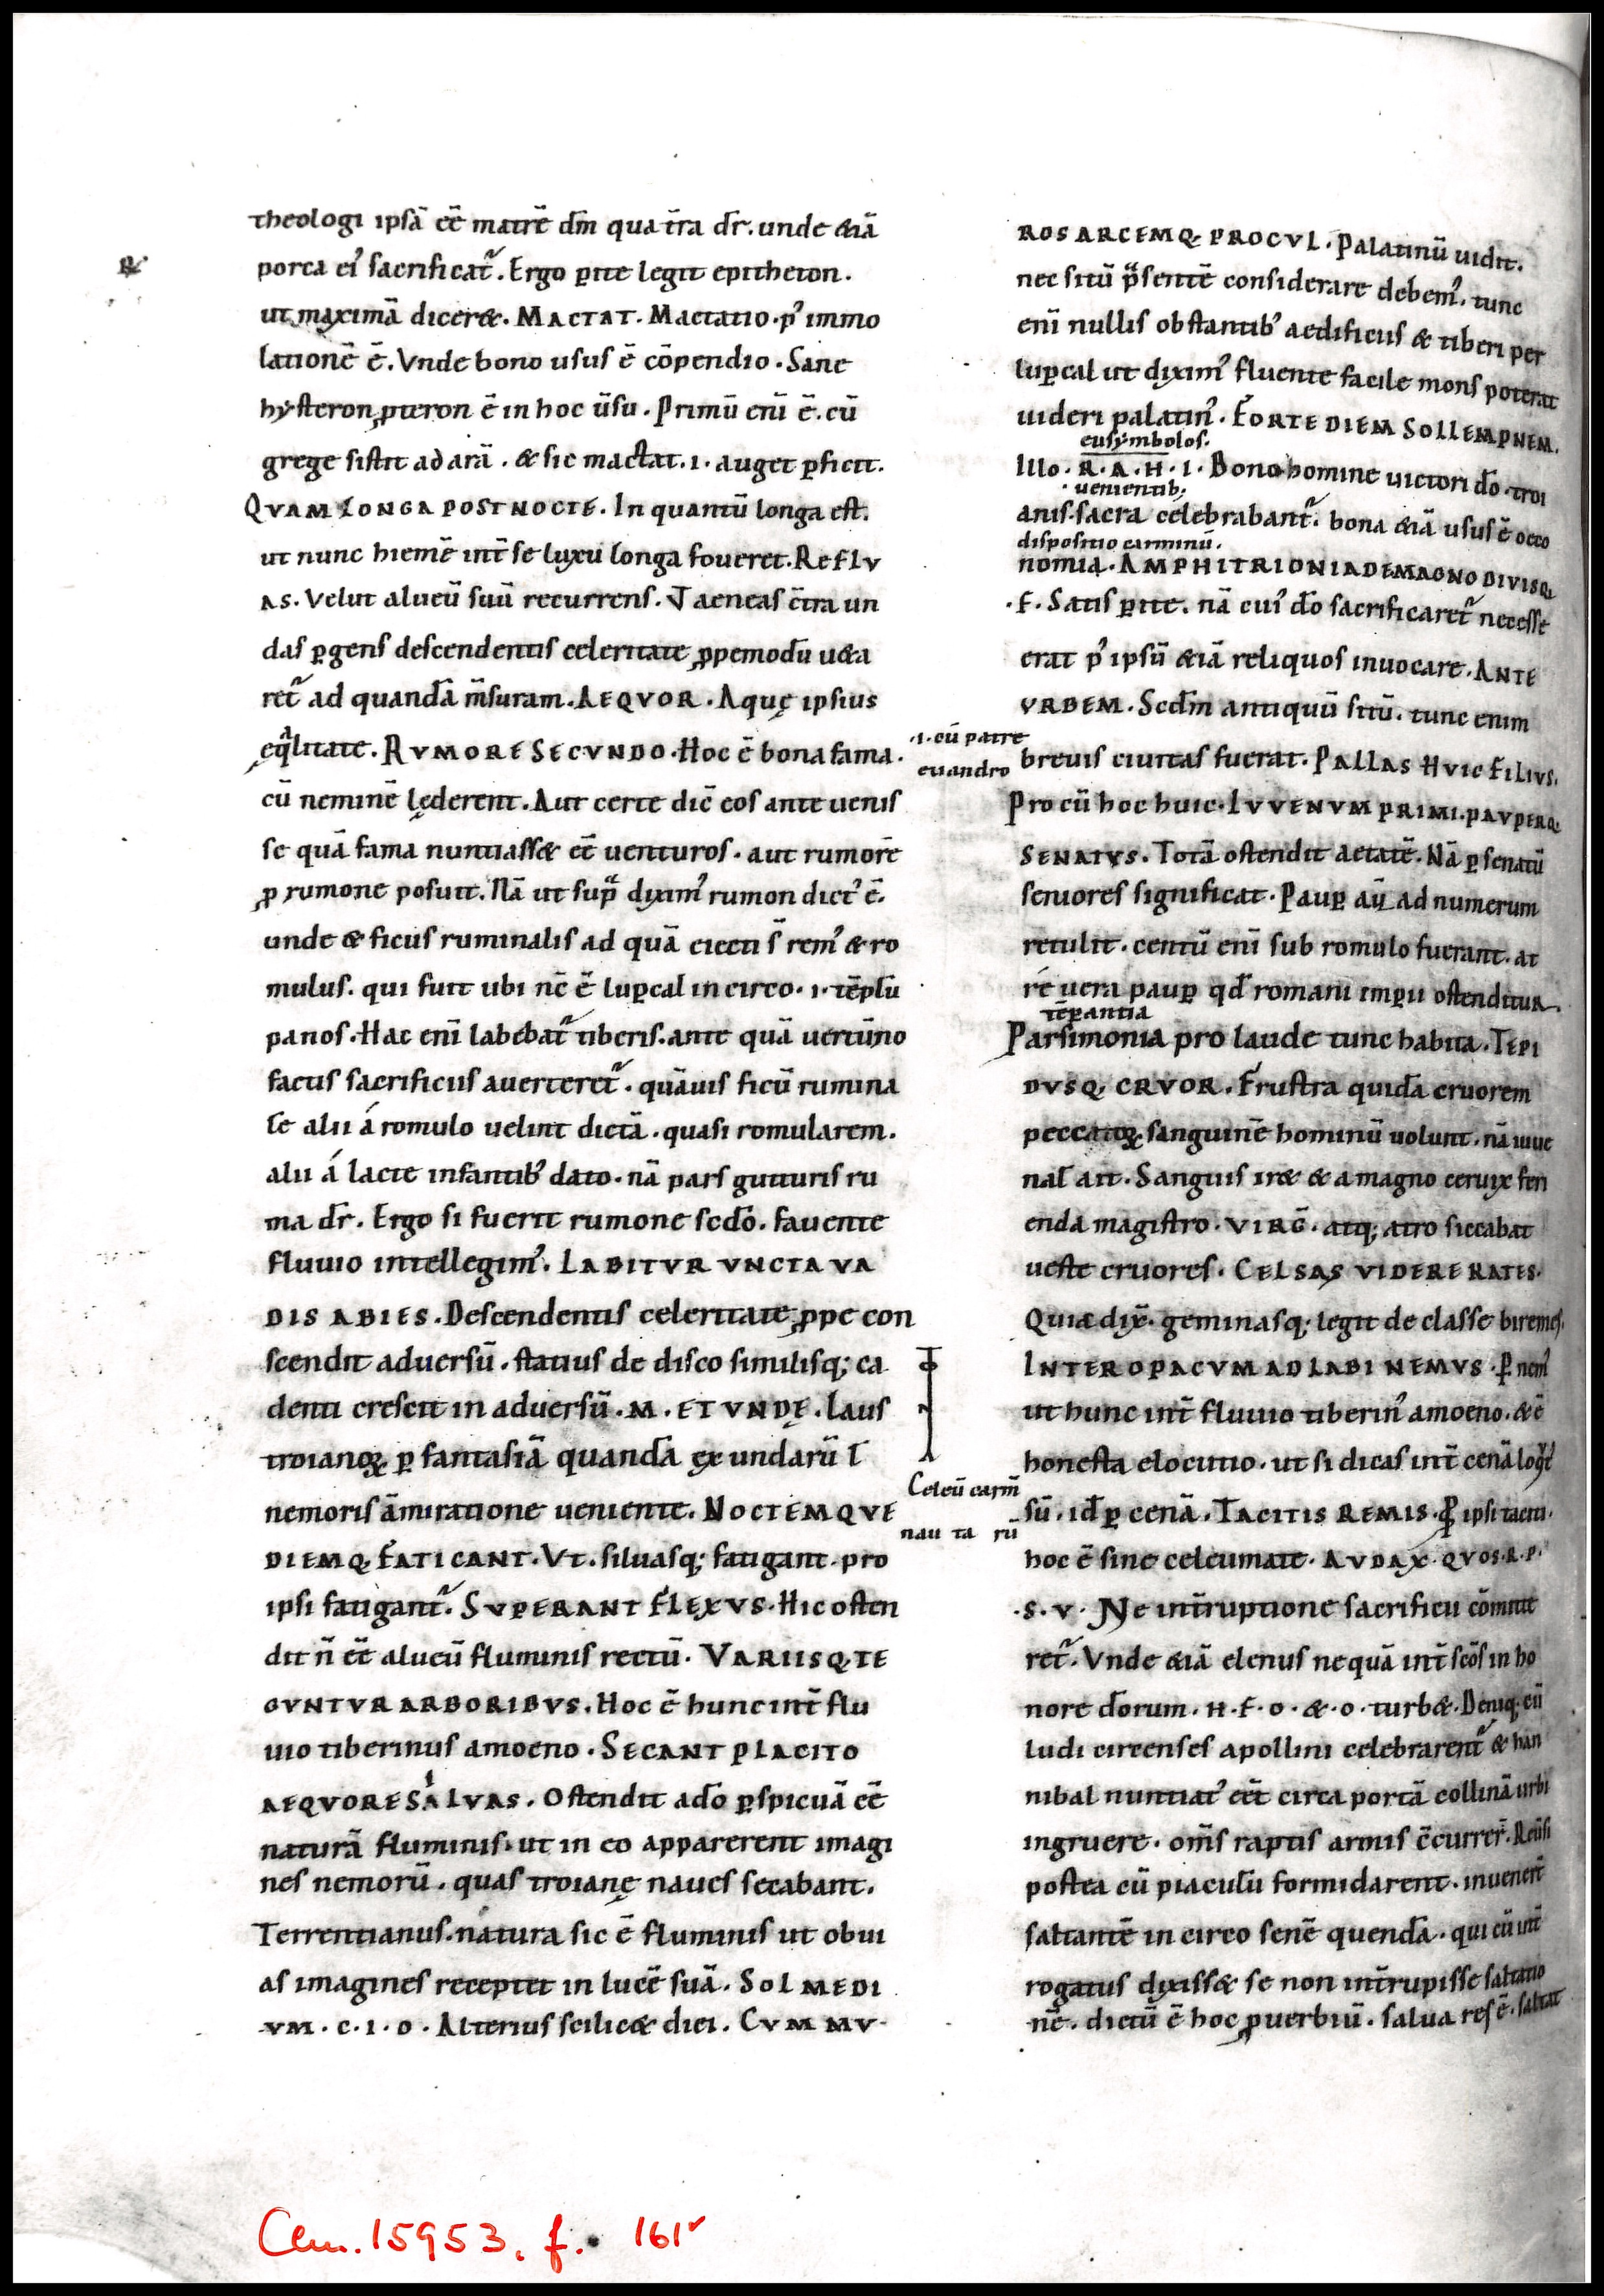 theologi ipsā eē matrē dm̄ qua tr̄a dr̄. unde &iā
porca ei᾽ sacrificat᷑. Ergo ꝑite legit epitheton.
ut maximā dicer&. MACTAT. Mactatio. p᾽ immo
lationē ē. Vnde bono usus ē cōpendio. Sane
hysteron ꝓteron ē in hoc ūsu. Primū enī ē. cū
grege sistit ad arā. & sic mactat. .i. auget ꝑficit.
QVAM LONGA POST NOCTĒ. In quantū longa est.
ut nunc hiemē int̄ se luxu longa foueret. REFLV
AS. Velut alueū suū recurrens. T aeneas c̄tra un
das ꝑgens descendentis celeritate ꝓpemodū u&a
ret᷑ ad quandā m̄suram. AEQVOR. Aquę ipsius
ęq̄litate. RVMORE SECVNDO. Hoc ē bona fama.
cū neminē lęderent. Aut certe dic̄ eos ante uenis
se quā fama nuntiass& eē uenturos. aut rumorē
ꝓ rumone posuit. Nā ut sup̄ dixim᾽ rumon dict᾽ ē.
unde & ficus ruminalis ad quā eiecti s̄ rem᾽ & ro
mulus. qui fuit ubi nc̄ ē luꝑcal in circo. .i. tēplū
panos. Hac enī labebat᷑ tiberis. ante quā uertūno
factis sacrificiis auerteret᷑. quāuis ficū rumina
lē alii á romulo uelint dictā. quasi romularem.
alii á lacte infantib᾽ dato. nā pars gutturis ru
ma dr̄. Ergo si fuerit rumone scdō. fauente
fluuio intellegim᾽. LABITVR VNCTA VA
DIS ABIES. Descendentis celeritate ꝓpe con
scendit aduersū. statius de disco similisq; ca
denti crescit in aduersū. M. ET VNDĘ. Laus
troianoꝝ ꝑ fantasiā quandā ex undarū ł
nemoris āmiratione ueniente. NOCTEMQVE
DIEMQ; FATICANT. Vt. siluasq; fatigant. pro
ipsi fatigant᷑. SVPERANT FLEXVS. Hic osten
dit n̄ eē alueū fluminis rectū. VARIISQ; TE
GVNTVR ARBORIBVS. Hoc ē hunc int̄ flu
uio tiberinus amoeno. SECANT PLACITO
AEQVORE SAiLVAS. Ostendit adō ꝑspicuā eē
naturā fluminis. ut in eo apparerent imagi
nes nemorū. quas troianę naues secabant.
Terrentianus. natura sic ē fluminis ut obui
as imagines receptet in lucē suā. SOL MEDI
VM. C. I. O. Alterius scilic& diei. CVM MV
ROS ARCEMQ; PROCVL. Palatinū uidit.
nec sitū p̄sentē considerare debem᾽. tunc
enī nullis obstantib᾽ aedificiis & tiberi per
luꝑcal ut dixim᾽ fluente facile mons poterat
uideri palatin᾽. FORTE DIEM SOLLEMPNEM.
eusymbolos.
Illo. R. A. H. I. Bono homine uictori dō. troi
uenientib;
anis sacra celebrabant᷑. bona &iā usus ē oeco
dispositio carminū.
nomia. AMPHITRIONIADE MAGNO DIVISQ;
.F. Satis ꝑite. nā cui᾽ dō sacrificaret᷑ necesse
erat p᾽ ipsū &iā reliquos inuocare. ANTE
VRBEM. Scdm̄ antiquū sitū. tunc enim
.i. cū patre
euandro
breuis ciuitas fuerat. PALLAS HVIC FILIVS.
Pro cū hoc huic. IVVENVM PRIMI. PAVPERQ;
SENATVS. Totā ostendit aetatē. Nā ꝑ senatū
seniores significat. Pauꝑ aū ad numerum
retulit. centū enī sub romulo fuerant. at
ré uera pauꝑ qđ romani imꝑii ostenditur.
tēꝑantia
Parsimonia pro laude tunc habita. TEPI
DVSQ; CRVOR. Frustra quidā cruorem
peccatoꝝ sanguinē hominū uolunt. nā iuue
nał ait. Sanguis ir& & a magno ceruix feri
enda magistro. VIRḠ. atq; atro siccabat
ueste cruores. CELSAS VIDERE RATES.
Quia dix̄. geminasq; legit de classe biremes.
INTER OPACVM ADLABI NEMVS. ꝑ nem᾽
ut hunc int̄ fluuio tiberin᾽ amoeno. & ē
honesta elocutio. ut si dicas int̄ cenā loq̄t᾽
Celeū carm̄
nau ta rū
sū. id ꝑ cenā. TACITIS REMIS. ꝓ ipsi taciti.
hoc ē sine celeumate. AVDAX. QVOS. R. P.
.S. V. Ne int̄ruptione sacrificii cōmitte
ret᷑. Vnde &iā elenus ne quā int̄ scōs in ho
nore dōrum. H. F. O. &. O. turb&. Deniq; cū
ludi circenses apollini celebrarent᷑ & han
nibal nuntiat᾽ eēt circa portā collinā urbi
ingruere. om̄s raptis armis c̄currer̄. Reūsi
postea cū piaculū formidarent. inuenert̄
saltantē in circo senē quendā. qui cū int̄
rogatus dixiss& se non int̄rupisse saltatio
nē. dictū ē hoc ꝓuerbiū. salua res ē. saltat
Clm. 15953. f. 161ʳ